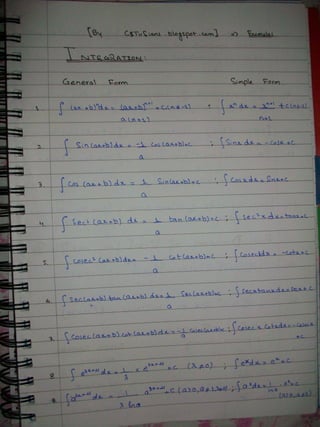 [By CBTuSians.blogspot.com] => Formulas
INTEGRATION:
General Form Simple Form
1. ∫ (ax+b)ⁿdx = (ax+b)ⁿ⁺¹ + C (n≠-1) ; ∫ xⁿ dx = xⁿ⁺¹ + C (n≠-1)
a(n+1) n+1
2. ∫ Sin(ax+b)dx = -1 Cos(ax+b)+C ; ∫ Sinx dx = -Cosx + C
a
3. ∫ Cos (ax+b) dx = 1 Sin(ax+b)+C ; ∫ Cosx dx = Sinx+C
a
4. ∫ Sec² (ax+b) dx = 1 tan (ax+b)+C ; ∫ Sec²x dx = tanx+C
a
5. ∫ Cosec² (ax+b)dx = -1 Cot(ax+b)+C ; ∫ Cosec²xdx = -Cotx+C
a
6. ∫ Sec(ax+b) tan(ax+b) dx = 1 Sec(ax+b)+C ; ∫ Secx tanx dx = Secx+C
a
7. ∫ Cosec(ax+b) Cot(ax+b)dx = -1 Cosec(ax+b)+C ; ∫ Cosecx Cotx dx = -Cosecx
a +C
8. dx = 1 +C (λ≠0) ; ∫ eˣdx = eˣ+C
λ
9. dx = 1 +C (a>0, ; ∫ aˣdx = 1 aˣ+C
λ lna lna (a>0, a≠1)